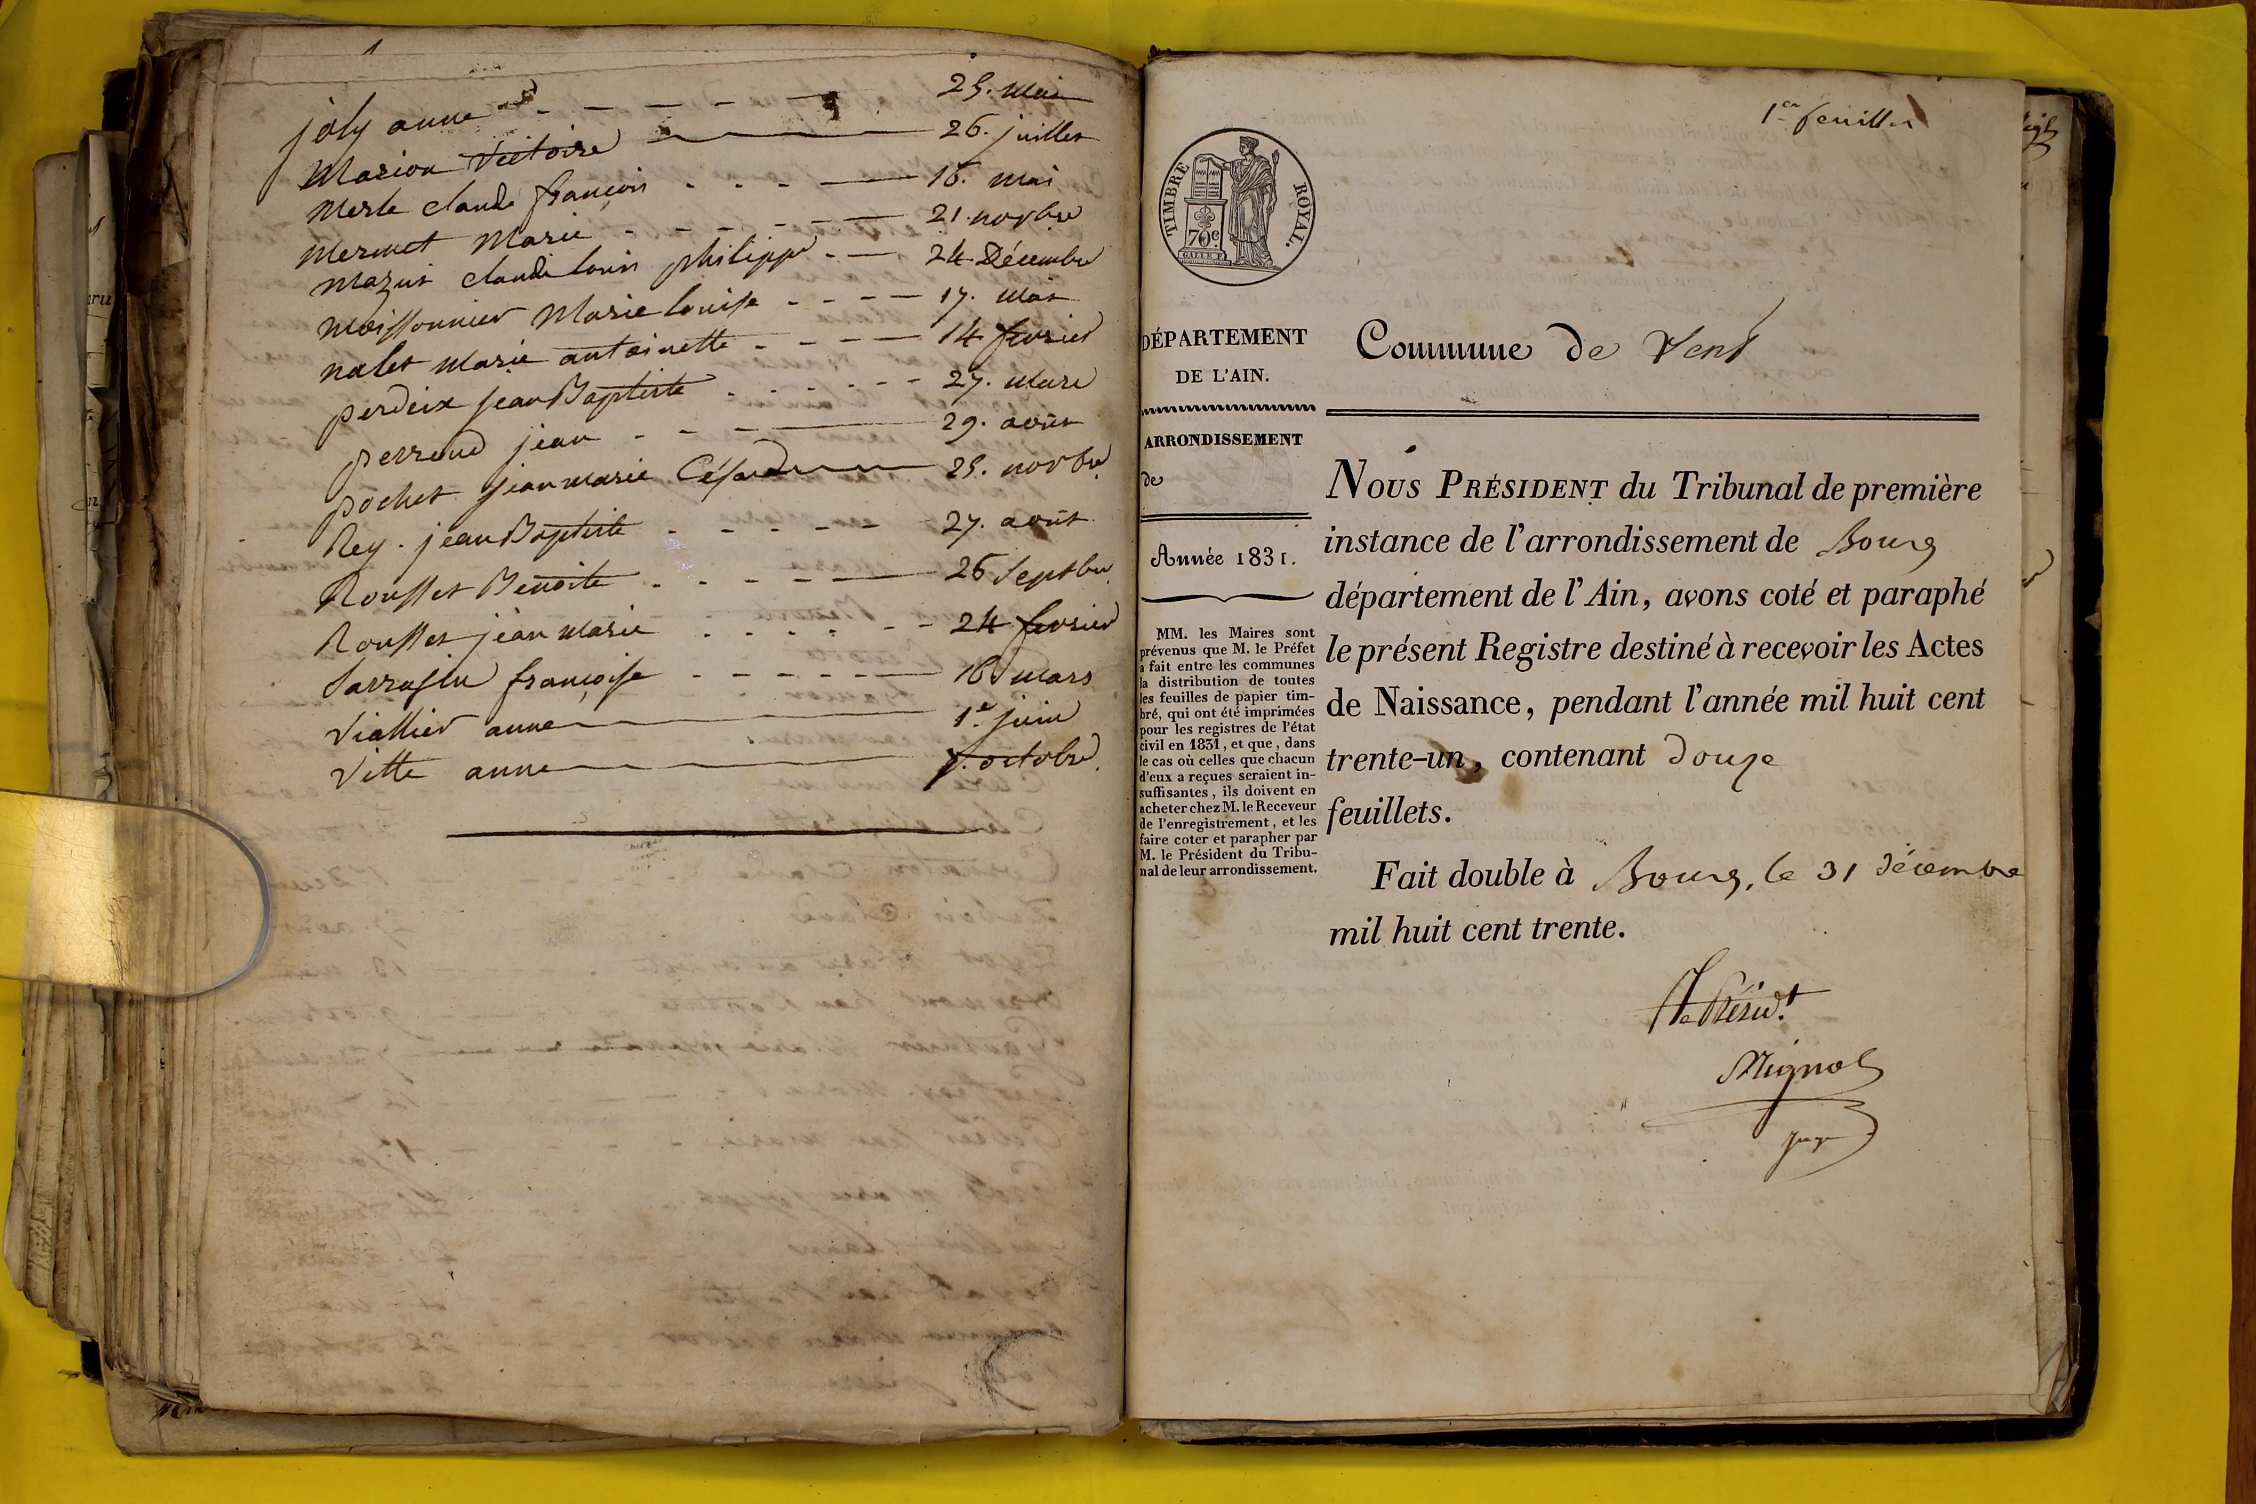 joly anne 25. mai
Marion Victoire 26. juillet
Merle claude françois 16. mai
Mermet Marie 21. novbre
Mazuis claude louis philippe 24 Décembre
Moissonnier Marie louise 17. mai
nalet Marie antoinette 14 fevrier
perdrix jean Baptiste 27. mars
perroud jean 29. août
pochet jean marie César 25. novbre
Rey. jean Baptiste 27. août
Rousset Benoite 26 Septbre
Rousset jean marie 24 fevrier
Sarrasin françoise 16 mars
Viallier anne 1e. juin
Vitte anne 7. octobre
1er feuillet
TIMBRE ROYAL.
70c.
DÉPARTEMENT
DE L'AIN.
ARRONDISSEMENT
de
Année 1831.
MM. les Maires sont
prévenus que M. le Préfet
a fait entre les communes
la distribution de toutes
les feuilles de papier tim-
bré, qui ont été imprimées
pour les registres de l'état
civil en 1831, et que, dans
le cas où celles que chacun
d'eux a reçues seraient in-
suffisantes, ils doivent en
acheter chez M. le Receveur
de l'enregistrement, et les
faire coter et parapher par
M. le Président du Tribu-
nal de leur arrondissement.
Commune de
NOUS PRÉSIDENT du Tribunal de première
instance de l'arrondissement de Bourg
département de l'Ain, avons coté et paraphé
le présent Registre destiné à recevoir les Actes
de Naissance, pendant l'année mil huit cent
trente-un, contenant douze
feuillets.
Fait double à Bourg, le 31 décembre
mil huit cent trente.
Le Présidt.
juge